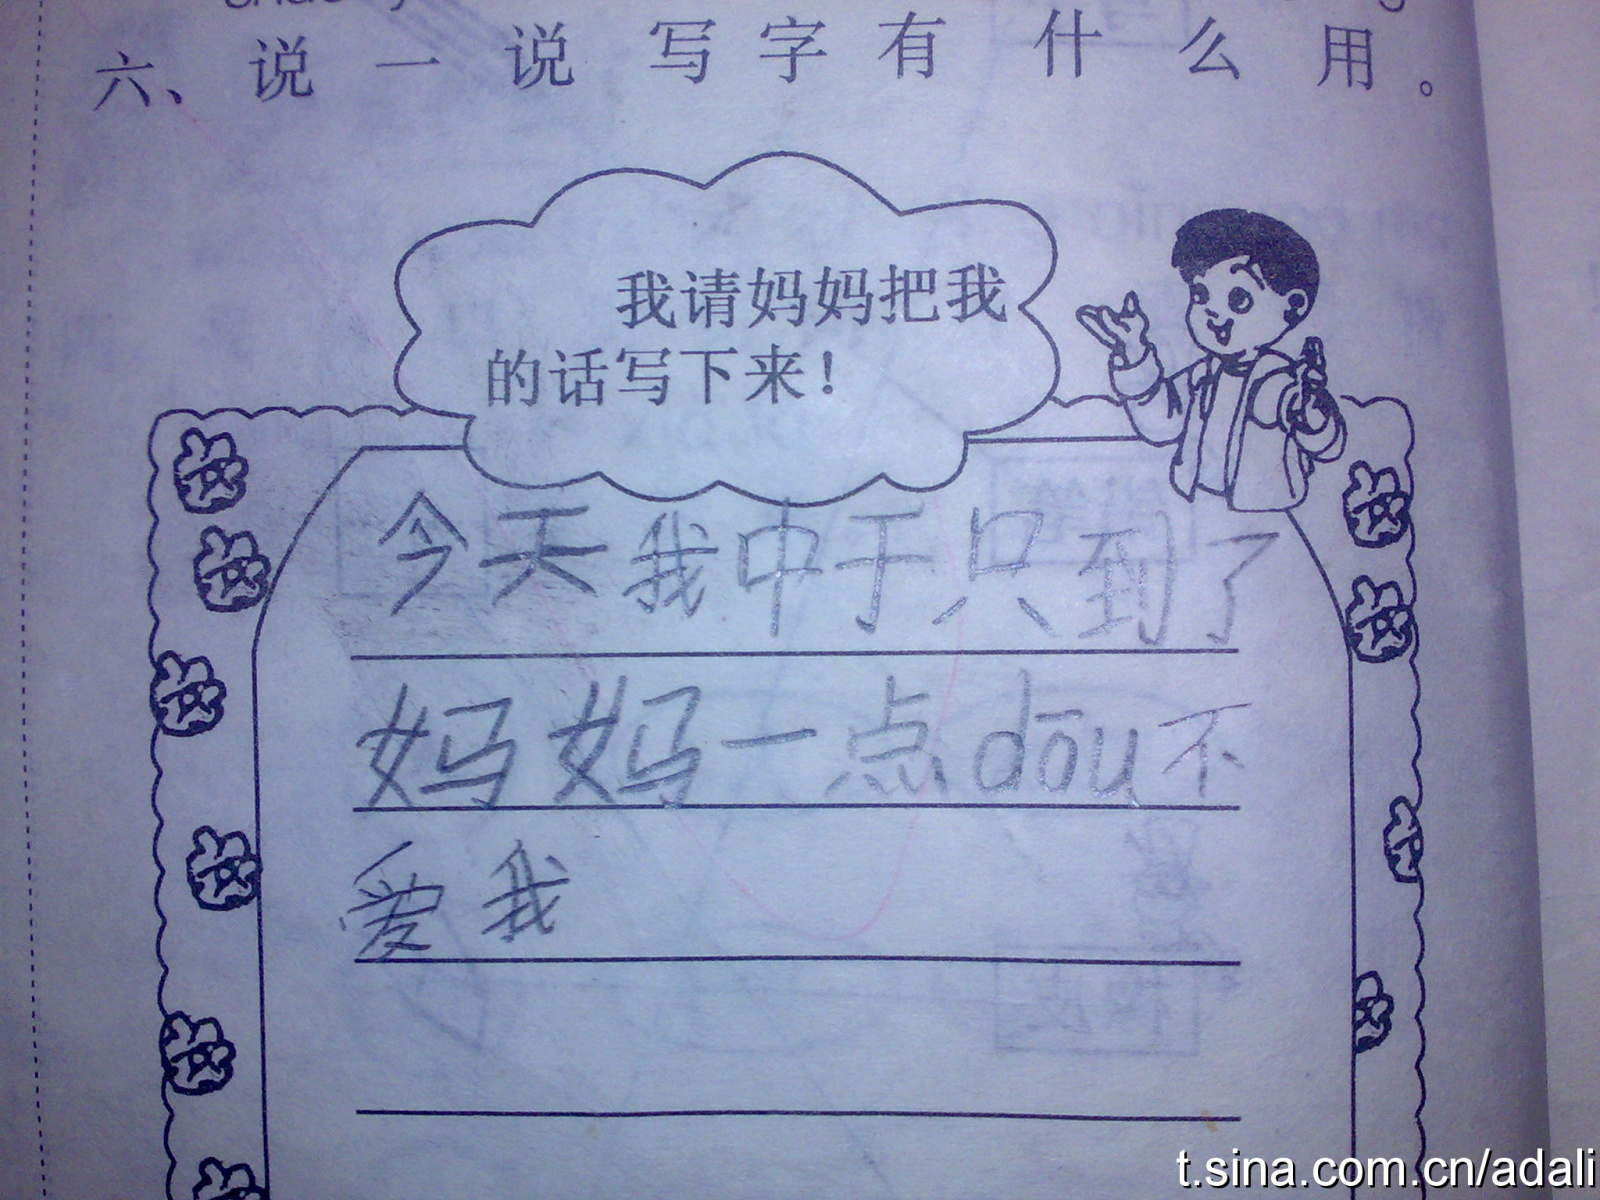 六、说一说写字有什么用。
我请妈妈把我
的话写下来！
今天我中于只到了
妈妈一点dōu不
爱我
t.sina.com.cn/adali